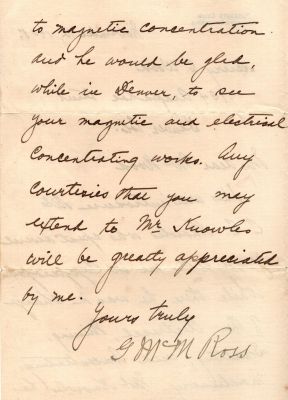 to magnetic concentration
and he would be glad,
while in Denver, to see
your magnetic and electrical
concentrating works. Any
courtesies that you may
extend to Mr Knowles
will be greatly appreciated
by me.
Yours truly
G McM Ross